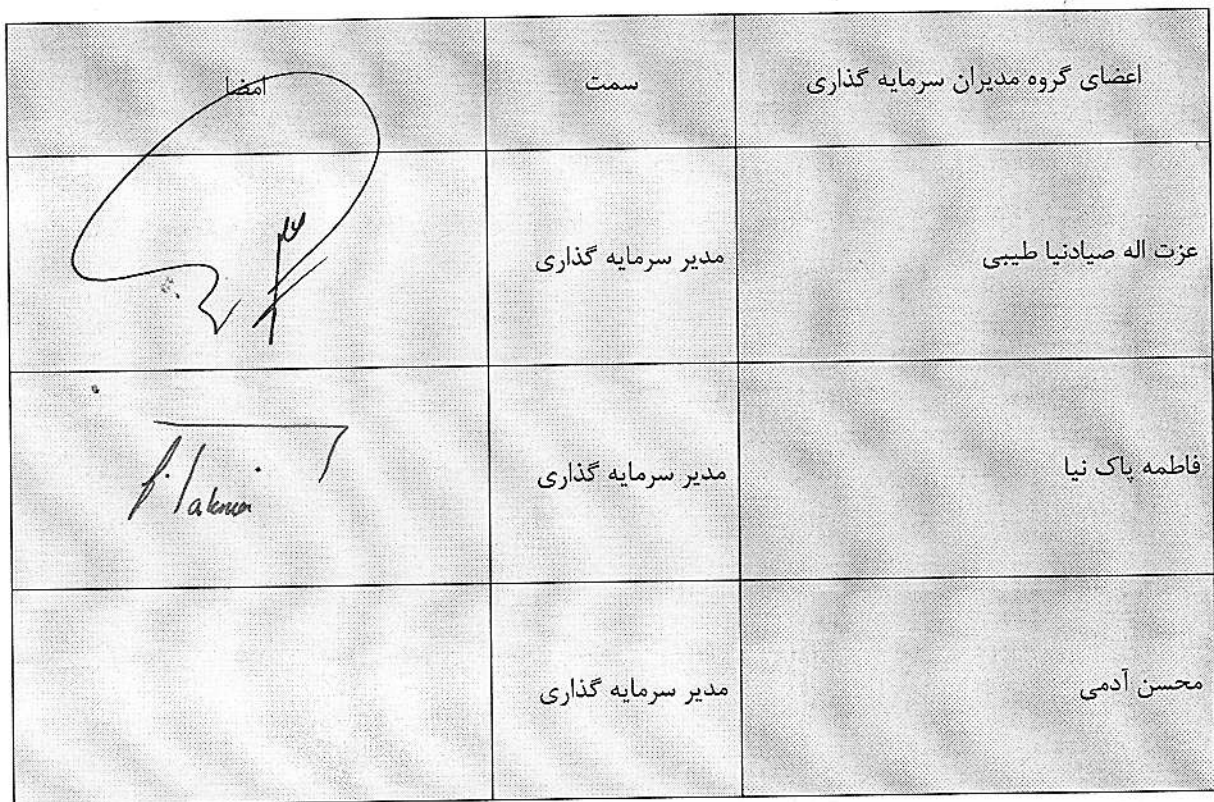 اعضای گروه مدیران سرمایه گذاری
سمت
امضا
عزت اله صیادنیا طیبی
مدیر سرمایه گذاری
فاطمه پاک نیا
مدیر سرمایه گذاری
محسن آدمی
مدیر سرمایه گذاری